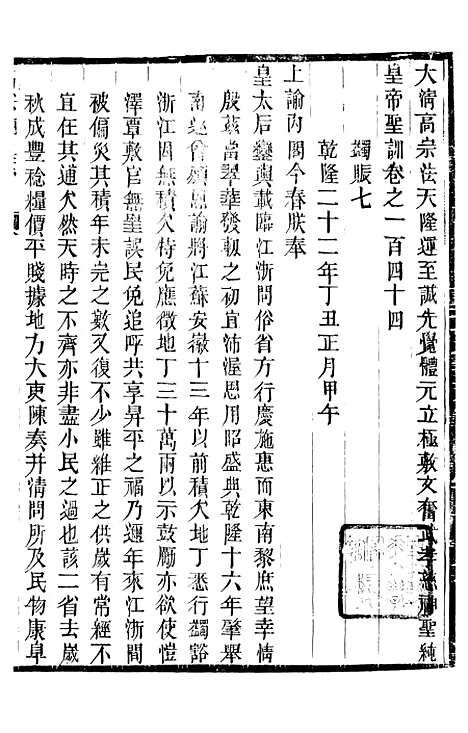 大淸高宗法天隆運至誠先覺體元立極敷文奮武孝慈神聖純
皇帝聖訓卷之一百四十四
蠲賑七
乾隆二十二年丁丑正月甲午
上諭內閣今春朕奉
皇太后鑾輿載臨江浙問俗省方行慶施惠而東南黎庶望幸情
殷茲當翠華發軔之初宜沛渥恩用昭盛典乾隆十六年肇舉
南巡曾頒恩諭將江蘇安徽十三年以前積欠地丁悉行蠲豁
浙江因無積欠特免應徵地丁三十萬兩以示鼓勵亦欲使愷
澤覃敷官無罣誤民免追呼共享昇平之福乃邇年來江浙間
被偏災其積年未完之數又復不少雖維正之供歲有常經不
宜任其逋欠然天時之不齊亦非盡小民之過也該二省去歲
秋成豐稔糧價平賤據地方大吏陳奏幷淸問所及民物康阜